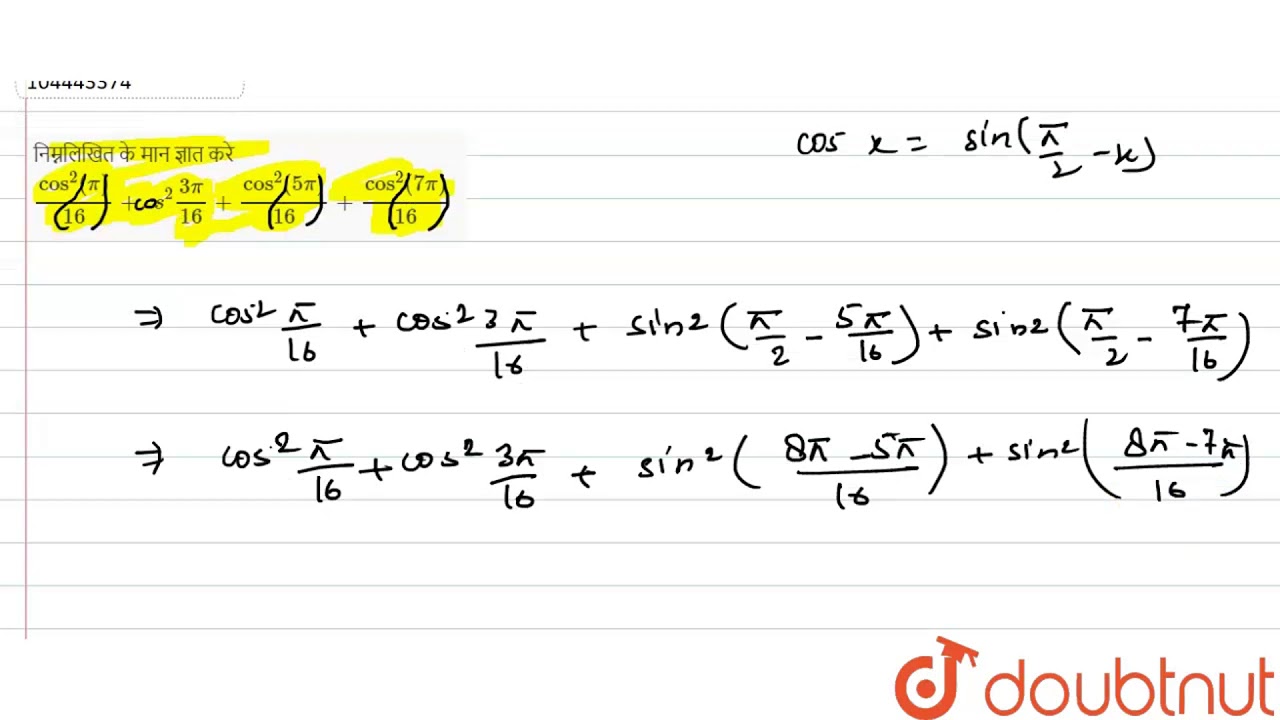 104443374
निम्नलिखित के मान ज्ञात करे
cos²(π)/(16) + cos² 3π/16 + cos²(5π)/(16) + cos²(7π)/(16)
cos x = sin(π/2 - x)
⇒ cos² π/16 + cos² 3π/16 + sin² (π/2 - 5π/16) + sin² (π/2 - 7π/16)
⇒ cos² π/16 + cos² 3π/16 + sin² (8π - 5π/16) + sin² (8π - 7π/16)
doubtnut